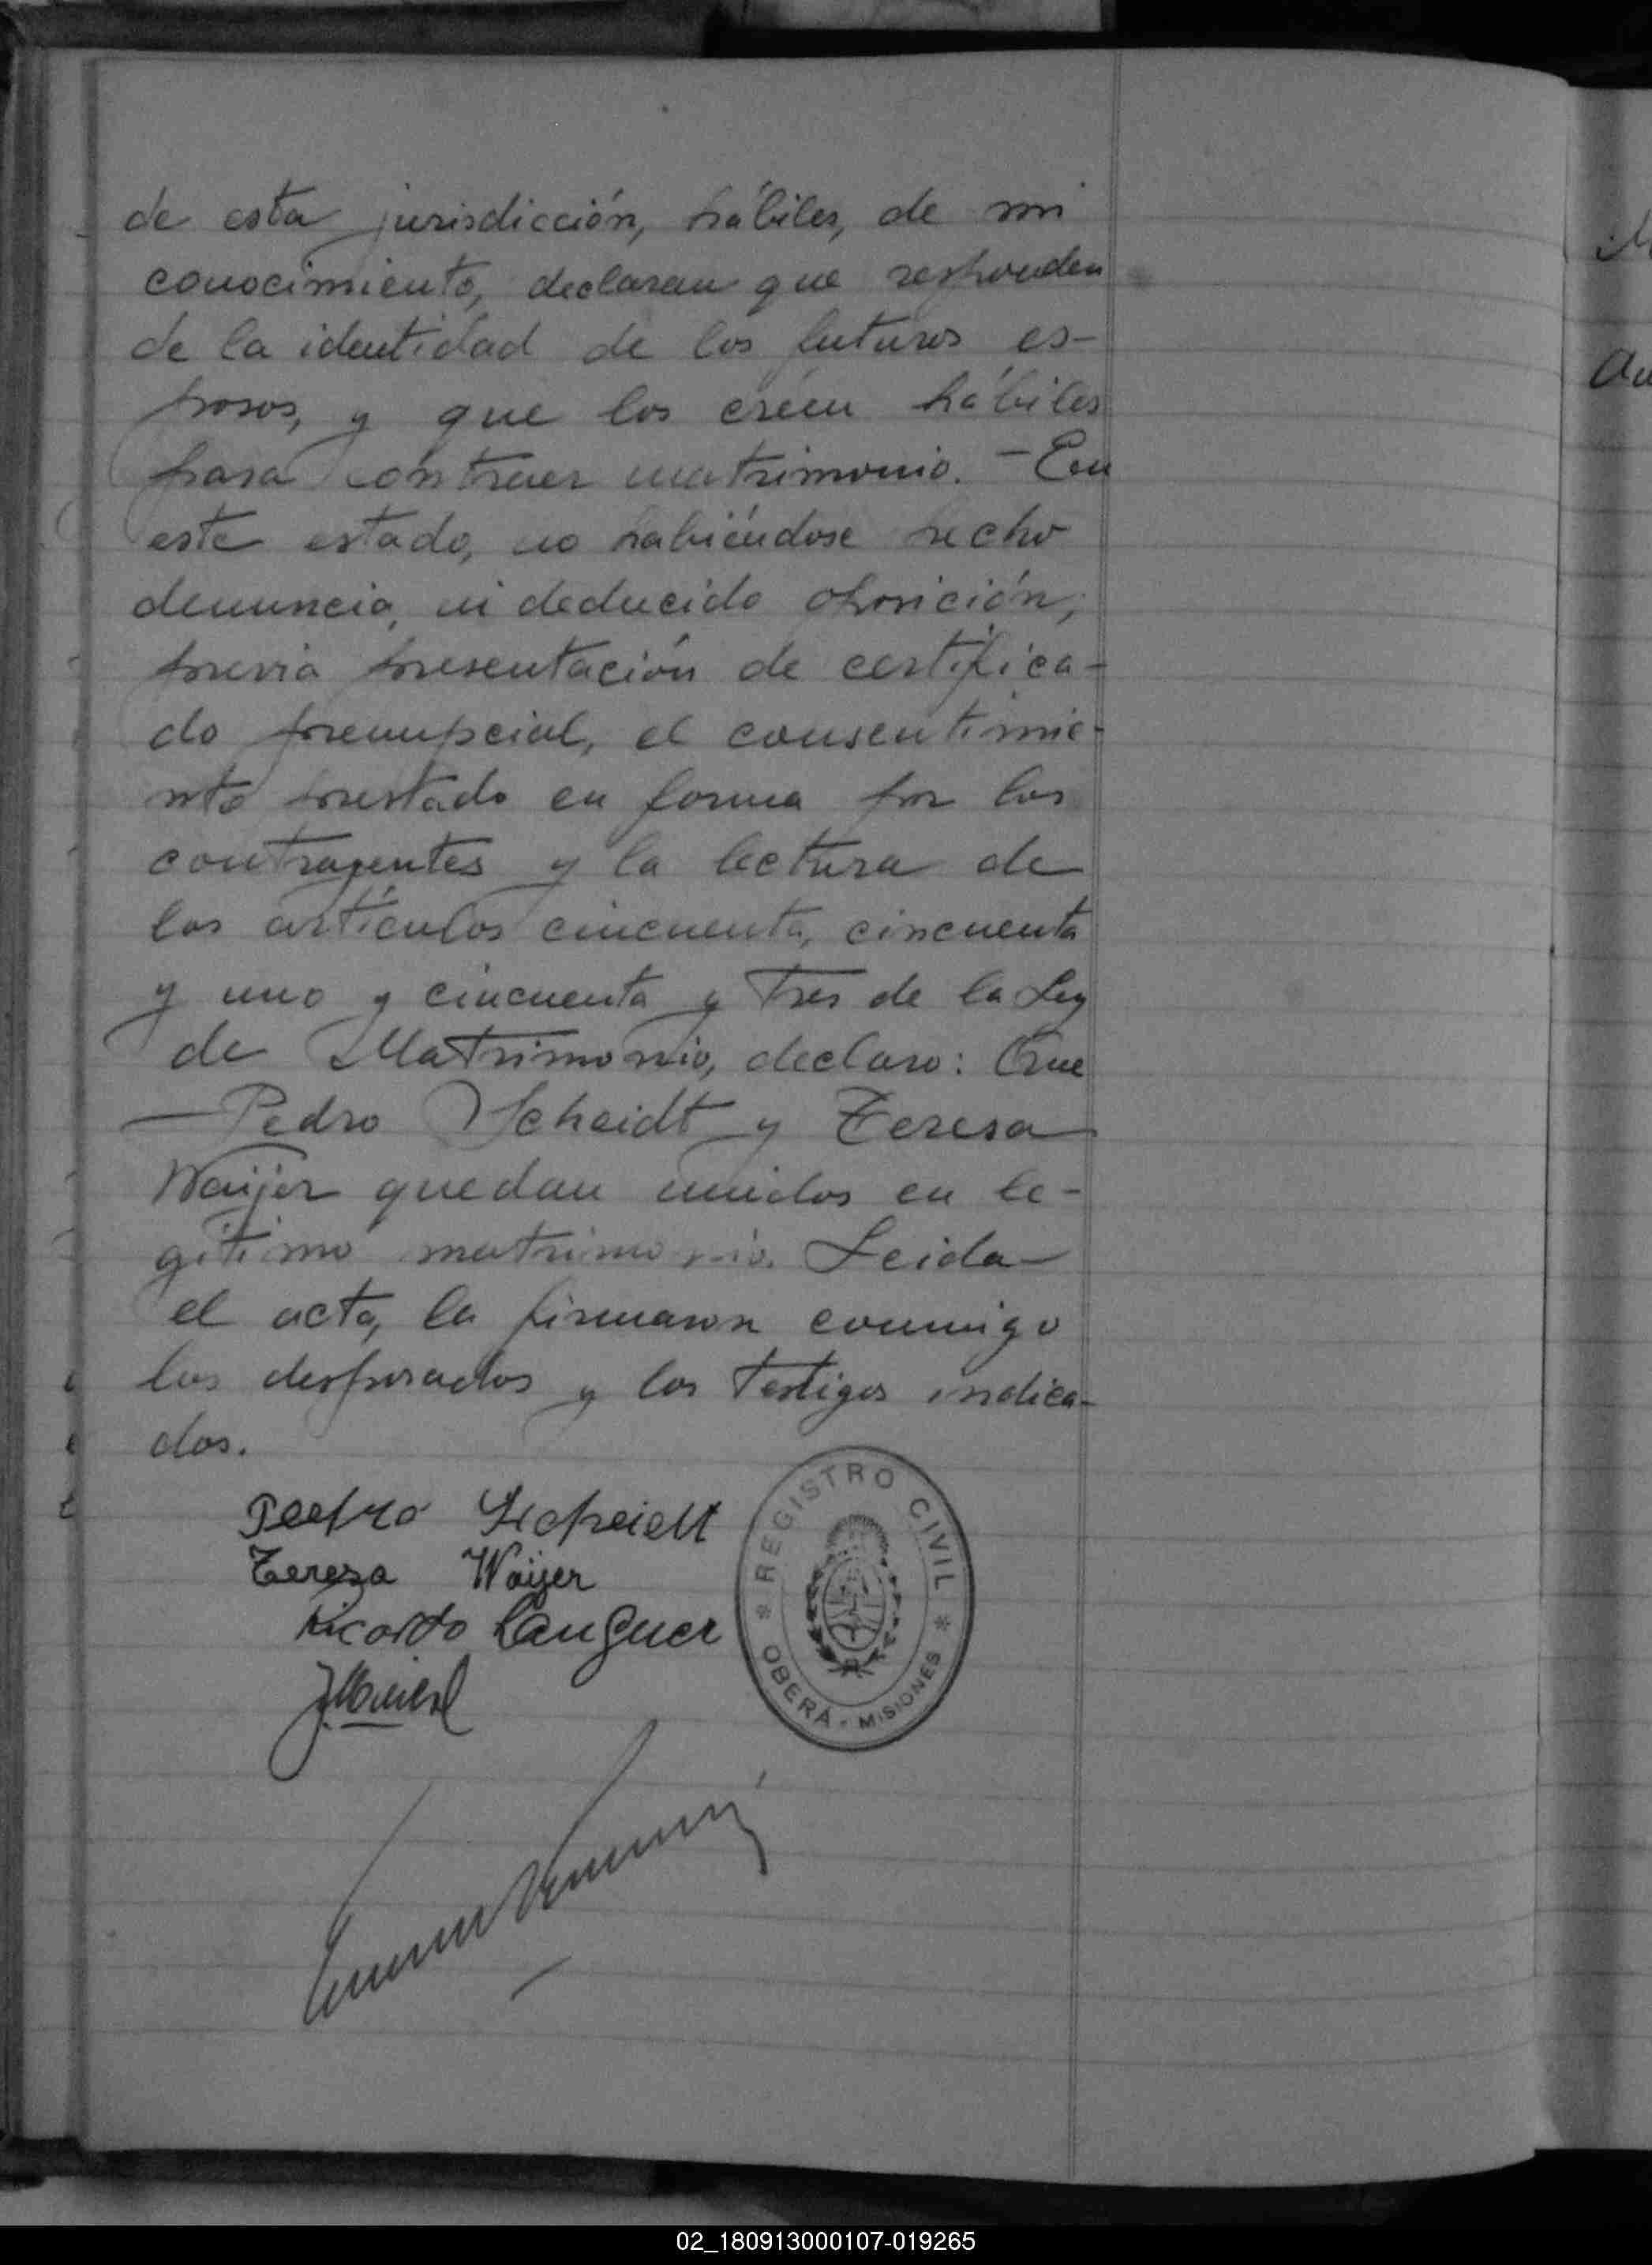 de esta jurisdicción, hábiles, de mi
conocimiento, declaran que responden
de la identidad de los futuros es-
posos, y que los créen hábiles
para contraer matrimonio. - En
este estado, no habiéndose hecho
denuncia, ni deducido oposición,
previa presentación de certifica-
do prenupcial, el consentimie-
nto prestado en forma por los
contrayentes y la lectura de
los artículos cincuenta, cincuenta
y uno y cincuenta y tres de la Ley
de Matrimonio, declaro: Que
—Pedro Scheidt y Teresa
Waijer quedan unidos en le-
gítimo matrimonio. Leida
el acta, la firmaron conmigo
los desposados y los testigos indica-
dos.
Pedro Scheidt
Teresa Waijer
Ricardo Languer
REGISTRO CIVIL
* OBERÁ - MISIONES *
02_180913000107-019265